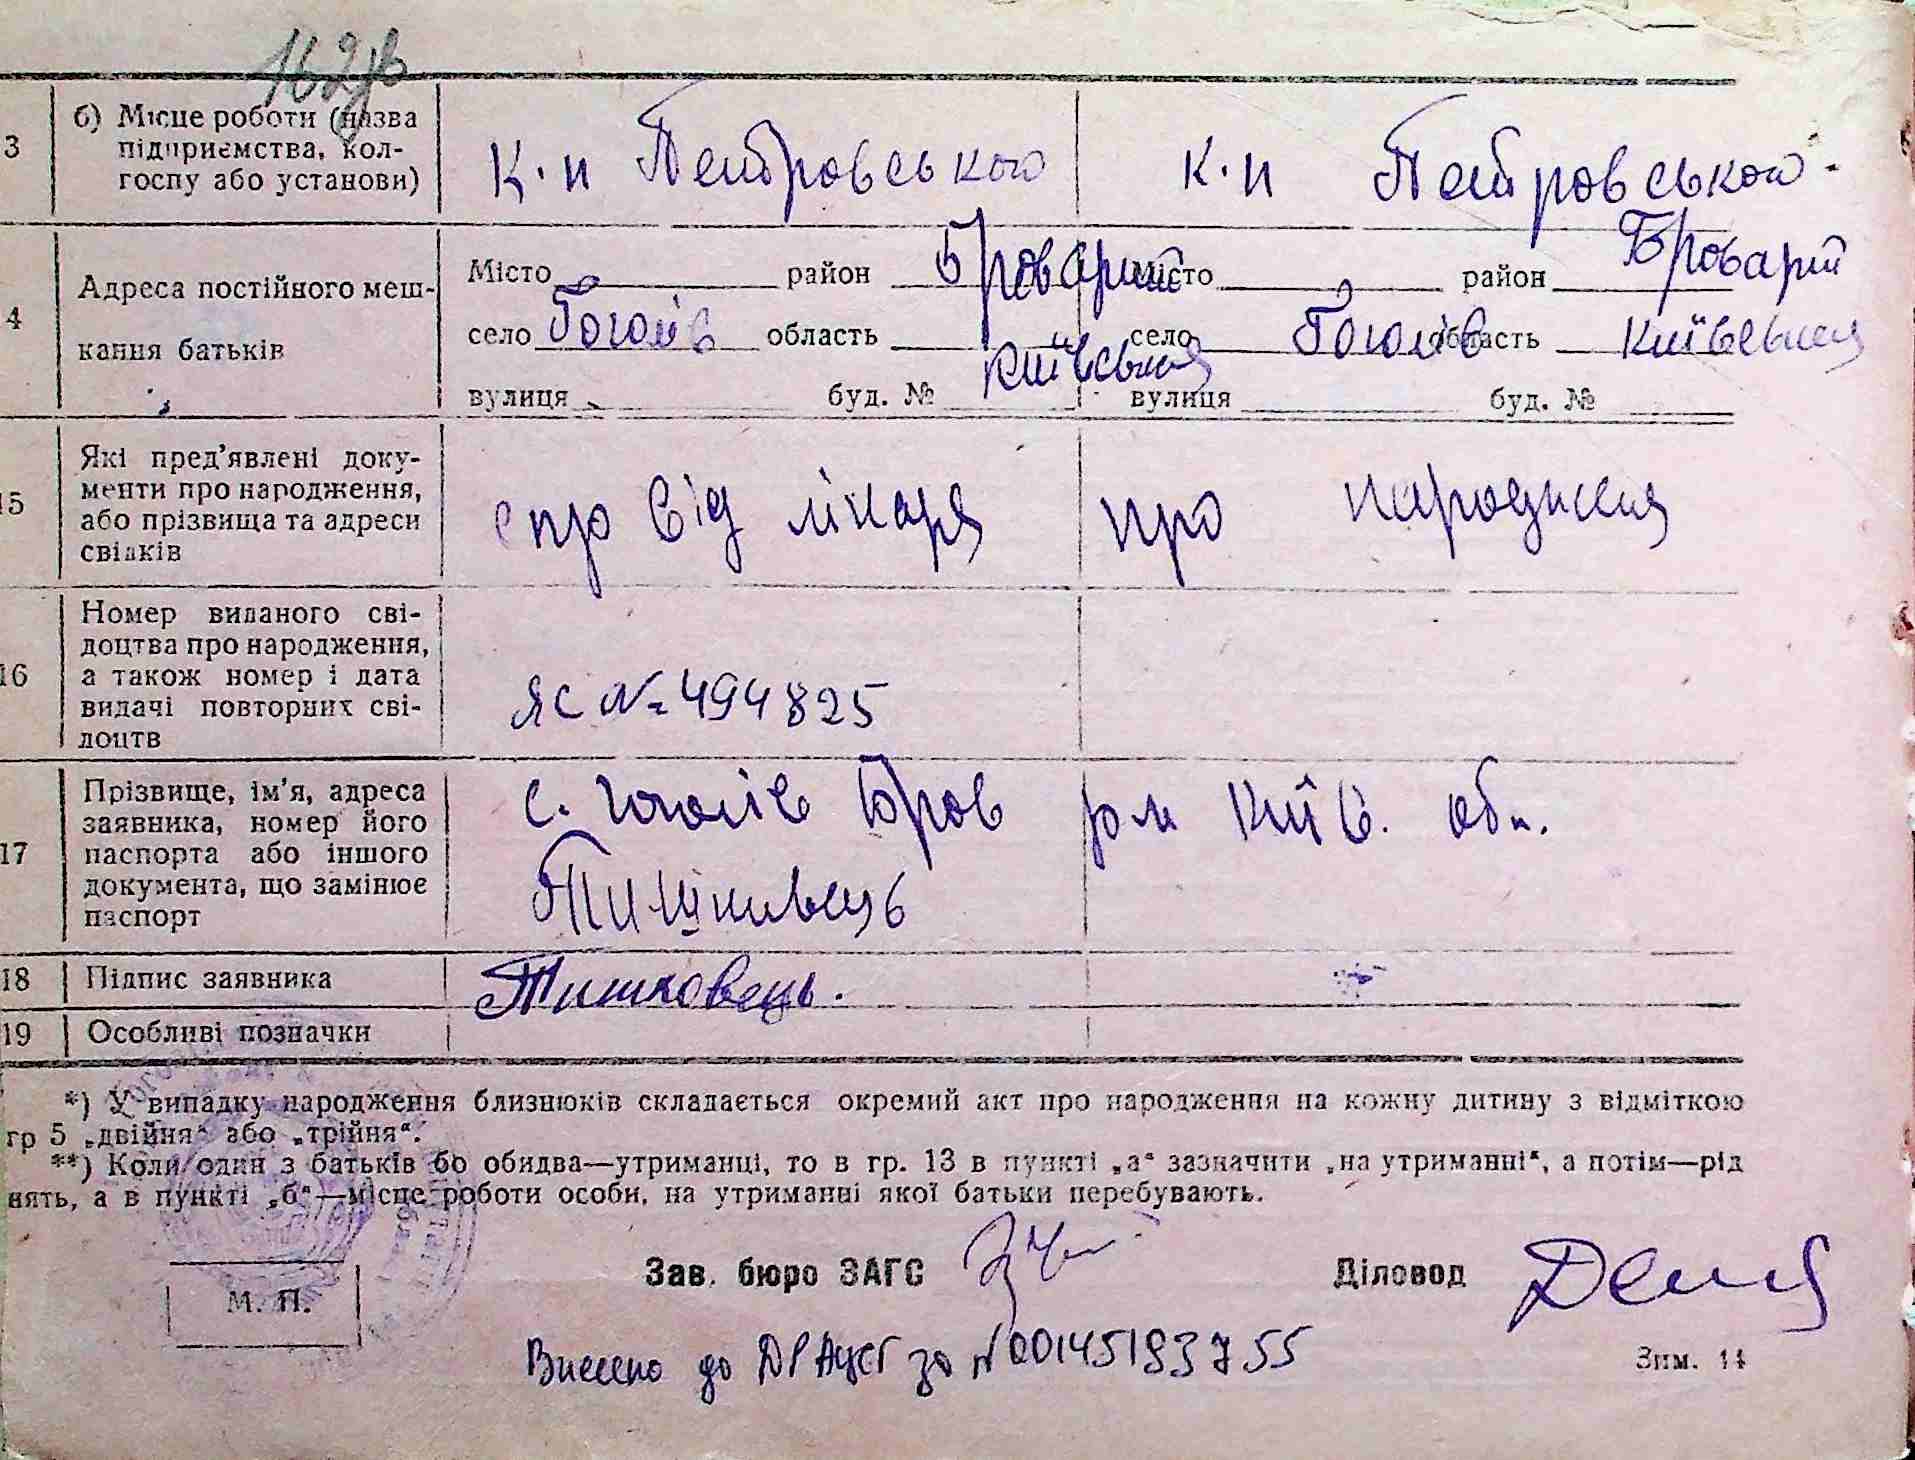 162зв
3
б) Місце роботи (назва
підприємства, кол-
госпу або установи)
К-п Петровського
к-п Петровського
4
Адреса постійного меш-
кання батьків
Місто район Броварий
село Гоголів область Київська
вулиця буд. №
Місто район Броварий
село Гоголів область Київська
вулиця буд. №
15
Які пред'явлені доку-
менти про народження,
або прізвища та адреси
свідків
спр від лікаря про народження
16
Номер виданого сві-
доцтва про народження,
а також номер і дата
видачі повторних сві-
доцтв
ЯС № 494825
17
Прізвище, ім'я, адреса
заявника, номер його
паспорта або іншого
документа, що замінює
паспорт
с. Гоголів Бров р-н Київ. обл.
Тишковець
18
Підпис заявника
Тишковець.
19
Особливі позначки
*) У випадку народження близнюків складається окремий акт про народження на кожну дитину з відміткою
гр 5 „двійня“ або „трійня“.
**) Коли один з батьків бо обидва—утриманці, то в гр. 13 в пункті „а“ зазначити „на утриманні“, а потім—рід
нять, а в пункті „б“—місце роботи особи, на утриманні якої батьки перебувають.
Зав. бюро ЗАГС
Діловод
М. П.
Внесено до ДРАЦСГ за №00145193755
Зим. 14